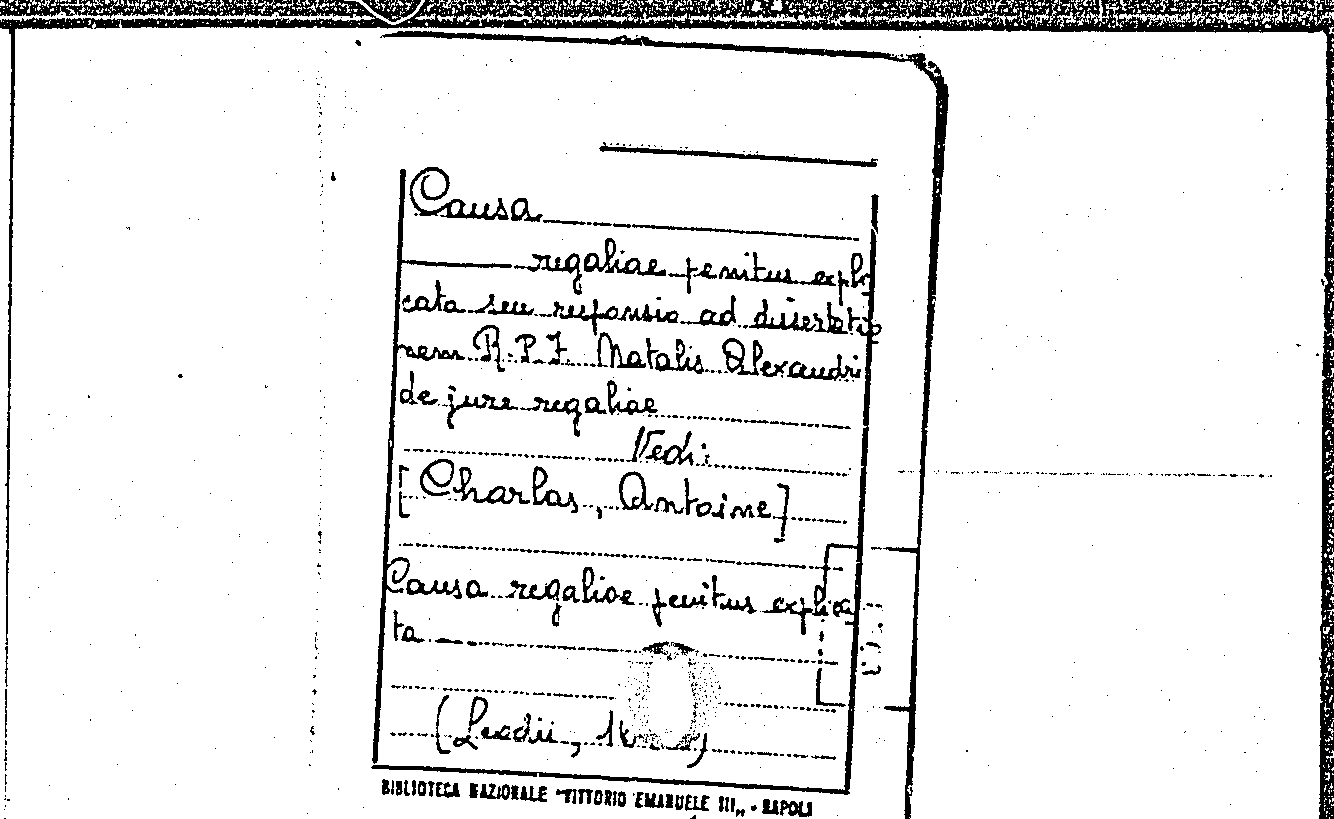 Causa
regaliae penitus expli
cata seu responsio ad dissertatio
nem R.P.F. Natalis Alexandri
de jure regaliae
Vedi:
[Charlas, Antoine]
Causa regaliae penitus explica
ta
(Leodii,
BIBLIOTECA NAZIONALE "VITTORIO EMANUELE III„ - NAPOLI